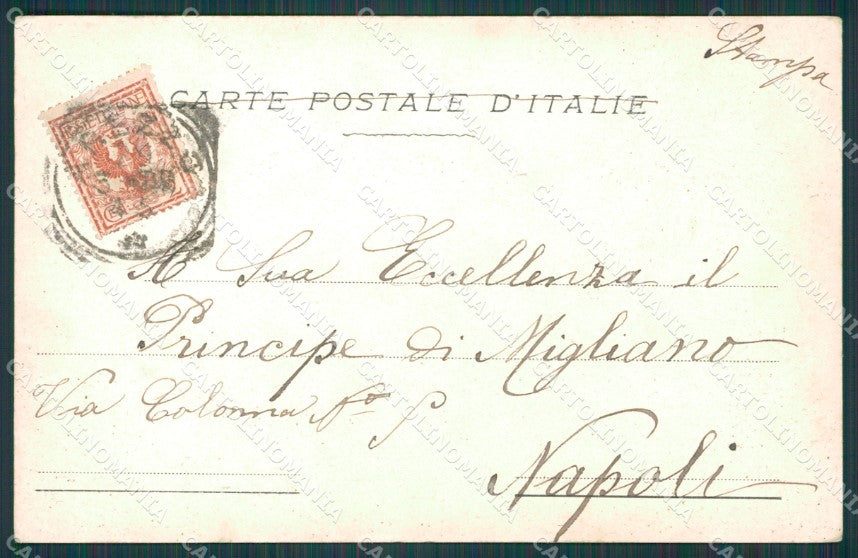 Stampa
CARTE POSTALE D'ITALIE
A Sua Eccellenza il
Principe di Migliano
Via Colonna No
Napoli
CARTOLINOMANIA